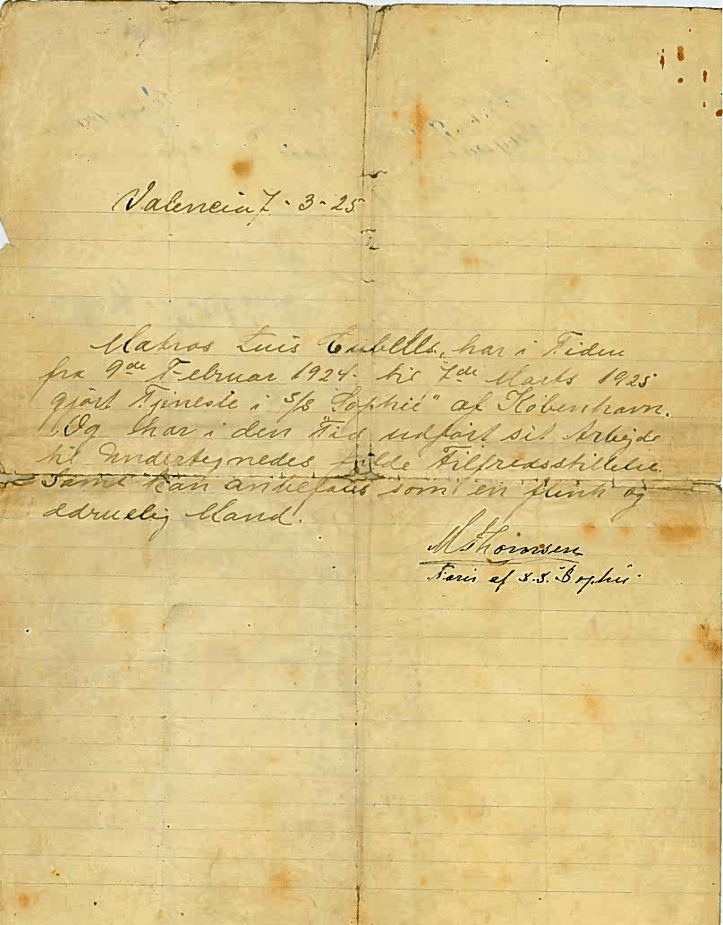 Valencia 7 - 3 - 25
Matros Luis Cubells, har i Tiden
fra 9de Februar 1924 - til 7de Marts 1925
gjort Tjeneste i S/S "Sophie" af København.
Og har i den Tid udført sit Arbejde
til Undertegnedes fulde Tilfredsstillelse
Samt kan anbefales som en flink og
ædruelig Mand.
M Thomsen
af S.S. Sophie